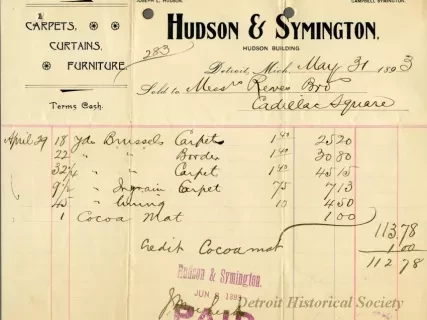 JOSEPH L. HUDSON. CAMPBELL SYMINGTON.
CARPETS,
CURTAINS,
FURNITURE
Terms Cash.
283
HUDSON & SYMINGTON,
HUDSON BUILDING
Detroit, Mich. May 31 1893
Sold to Mess Reves Bro
Cadilac Square
April 29 18 Yds Brussels Carpet 1 40 25 20
22 " " Border 1 40 30 80
32 1/4 " " Carpet 1 40 45 15
9 1/2 " Ingrain Carpet 75 7 13
45 " Lining 10 4 50
1 Cocoa Mat 1 00
113.78
Credit Cocoa mat 1 00
112 78
Hudson & Symington.
JUN 1893
PAID
Detroit Historical Society